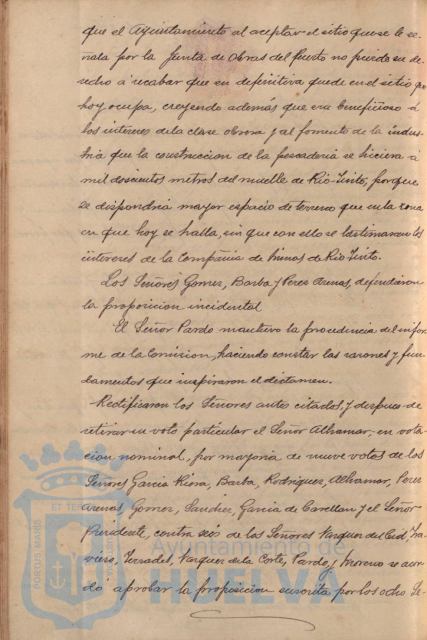 que el Ayuntamiento al aceptar el sitio que se le se-
ñala por la Junta de Obras del Puerto no pierda su de-
recho a recabar que en definitiva quede en el sitio que
hoy ocupa, creyendo además que era beneficioso á
los intereses de la clase obrera y al fomento de la indus-
tria que la construccion de la pescaderia se hiciera á
mil doscientos metros del muelle de Rio-Tinto, porque
se dispondria mayor espacio de terreno que en la zona
en que hoy se halla, sin que con ello se lastimaran los
intereses de la Compañia de minas de Rio Tinto.
Los Señores Gomez, Barba y Perez Arenas, defendieron
la proposicion incidental
El Señor Pardo mantuvo la procedencia del infor-
me de la Comision, haciendo constar las razones y fun-
damentos que inspiraron el dictamen.
Rectificaron los Señores antes citados, y despues de
retirar su voto particular el Señor Alhamar, en vota-
cion nominal, por mayoria de nueve votos de los
Señores Garcia Riera, Barba, Rodriguez, Alhamar, Perez
Arenas, Gomez, Sanchez, Garcia de Canellan y el Señor
Presidente, contra seis de los Señores Vazquez del Cid, Tra-
viero, Terradel, Vazquez de la Corte, Pardo, y Moreno se acor-
dó aprobar la proposicion suscrita por los ocho Se-
PORTUS MARIS ET TERRAE
Ayuntamiento de
HUELVA